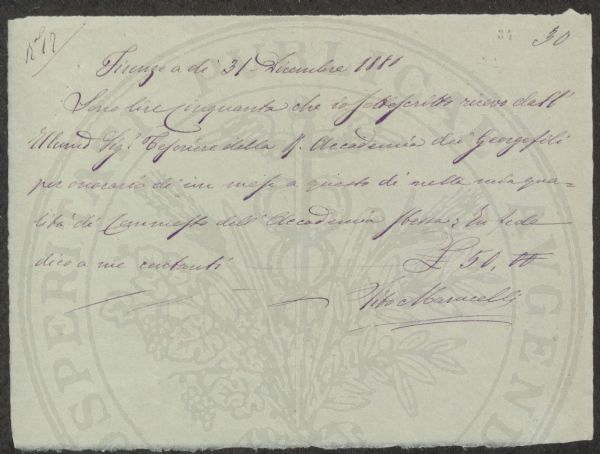 N° 12
84 30
Firenze a dì 31 Dicembre 1880
Sono lire cinquanta che io sottoscritto ricevo dall'
Illmo Sigr Tesoriere della R. Accademia dei Georgofili
per onorario di un mese a questo dì nella mia qua=
lità di Commesso dell' Accademia stessa; In fede
dico a me contanti £ 50,00
Vito Marucelli
PUBLICAE
PROSPERITATI AUGENDAE